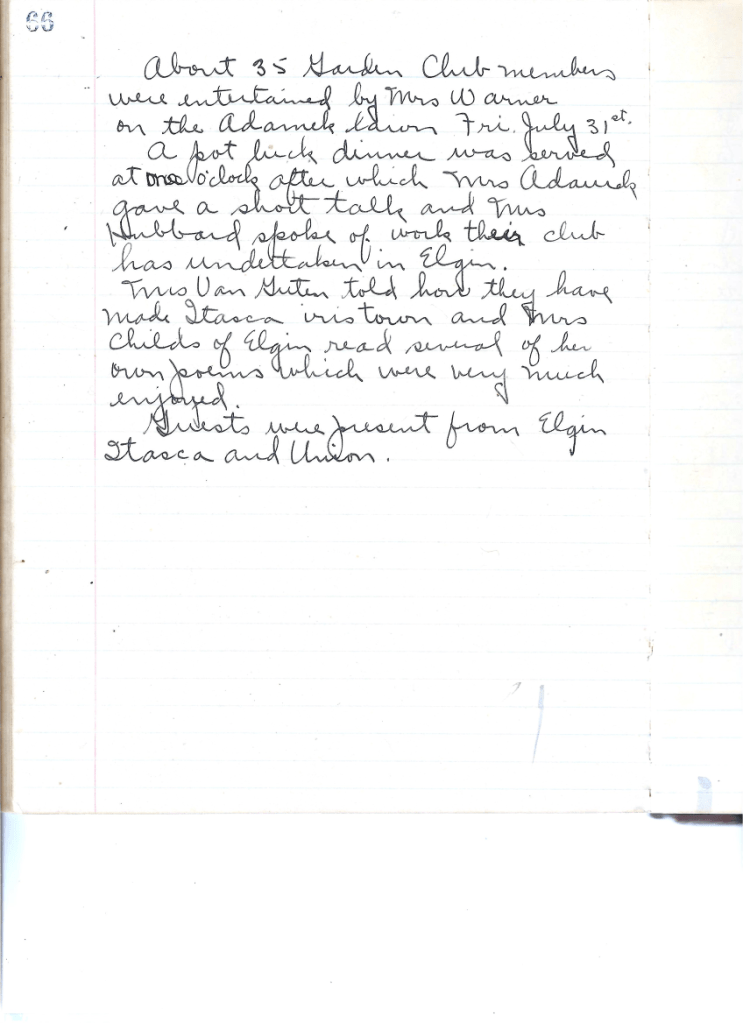 66
About 35 Garden Club members
were entertained by Mrs Warner
on the Adamek lawn Fri. July 31st.
A pot luck dinner was served
at one o'clock after which Mrs Adamek
gave a short talk and Mrs
Hubbard spoke of work their club
has undertaken in Elgin.
Mrs Van Guten told how they have
made Itasca iris town and Mrs
Childs of Elgin read several of her
own poems which were very much
enjoyed.
Guests were present from Elgin
Itasca and Union.